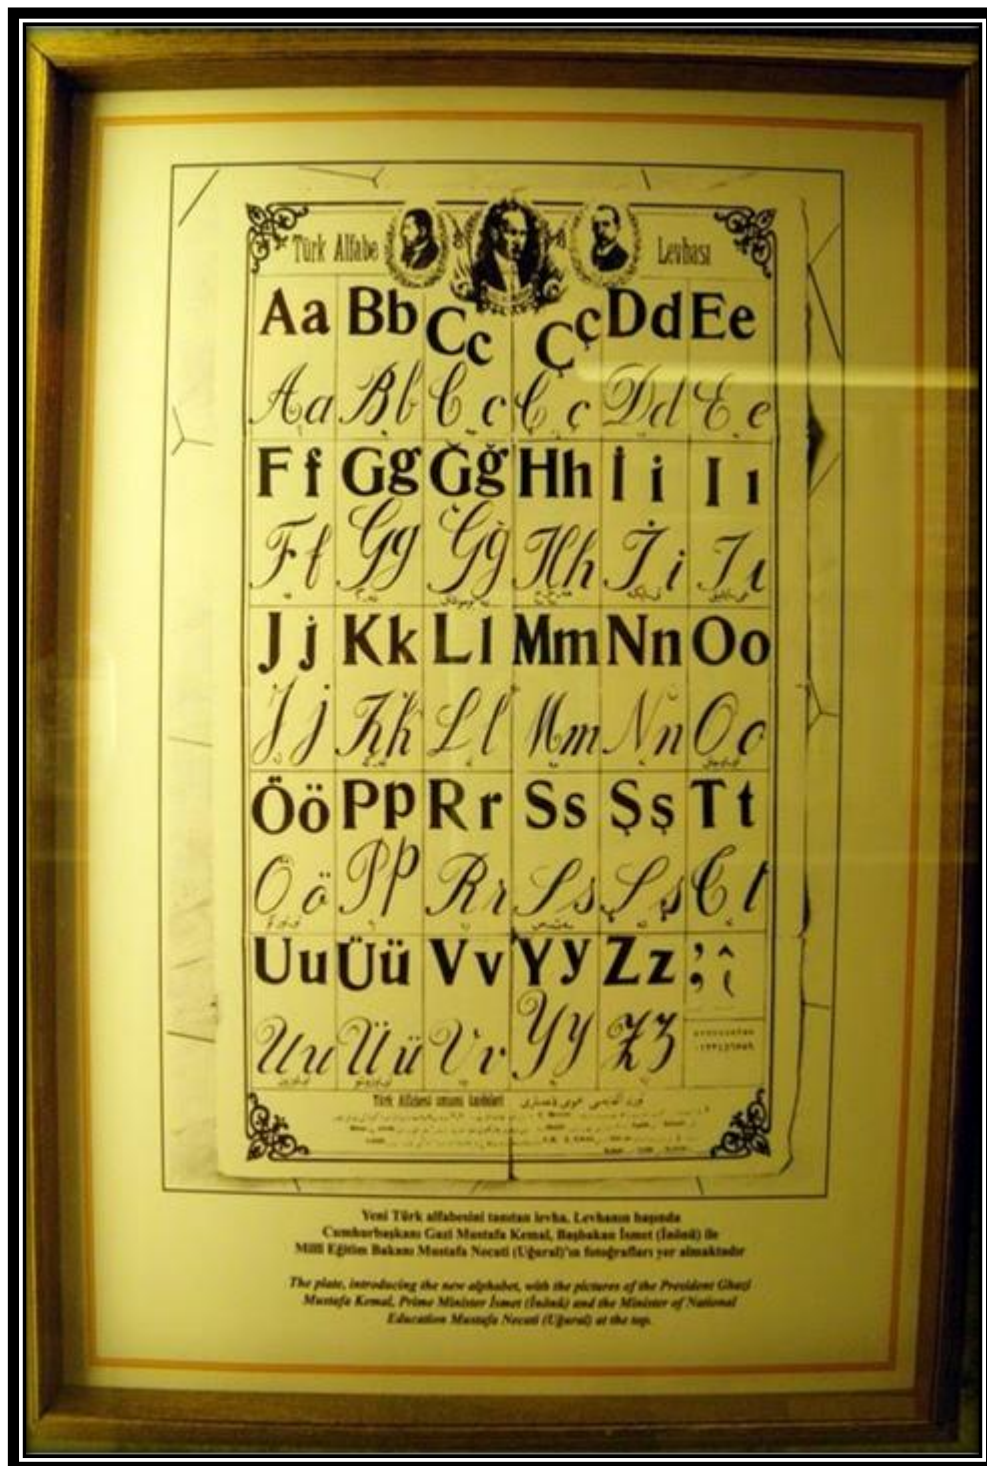 Türk Alfabe Levhası
Aa Bb Cc Çç Dd Ee
Aa Bb Cc Çç Dd Ee
Ff Gg Ğğ Hh İi Iı
Ff Gg Ğğ Hh İi Iı
Jj Kk Ll Mm Nn Oo
Jj Kk Ll Mm Nn Oo
Öö Pp Rr Ss Şş Tt
Öö Pp Rr Ss Şş Tt
Uu Üü Vv Yy Zz
Uu Üü Vv Yy Zz
Türk Alfabesi
Yeni Türk alfabesini tanıtan levha. Levhanın başında
Cumhurbaşkanı Gazi Mustafa Kemal, Başbakan İsmet (İnönü) ile
Milli Eğitim Bakanı Mustafa Necati (Uğural)'ın fotoğrafları yer almaktadır
The plate, introducing the new alphabet, with the pictures of the President Ghazi
Mustafa Kemal, Prime Minister İsmet (İnönü) and the Minister of National
Education Mustafa Necati (Uğural) at the top.